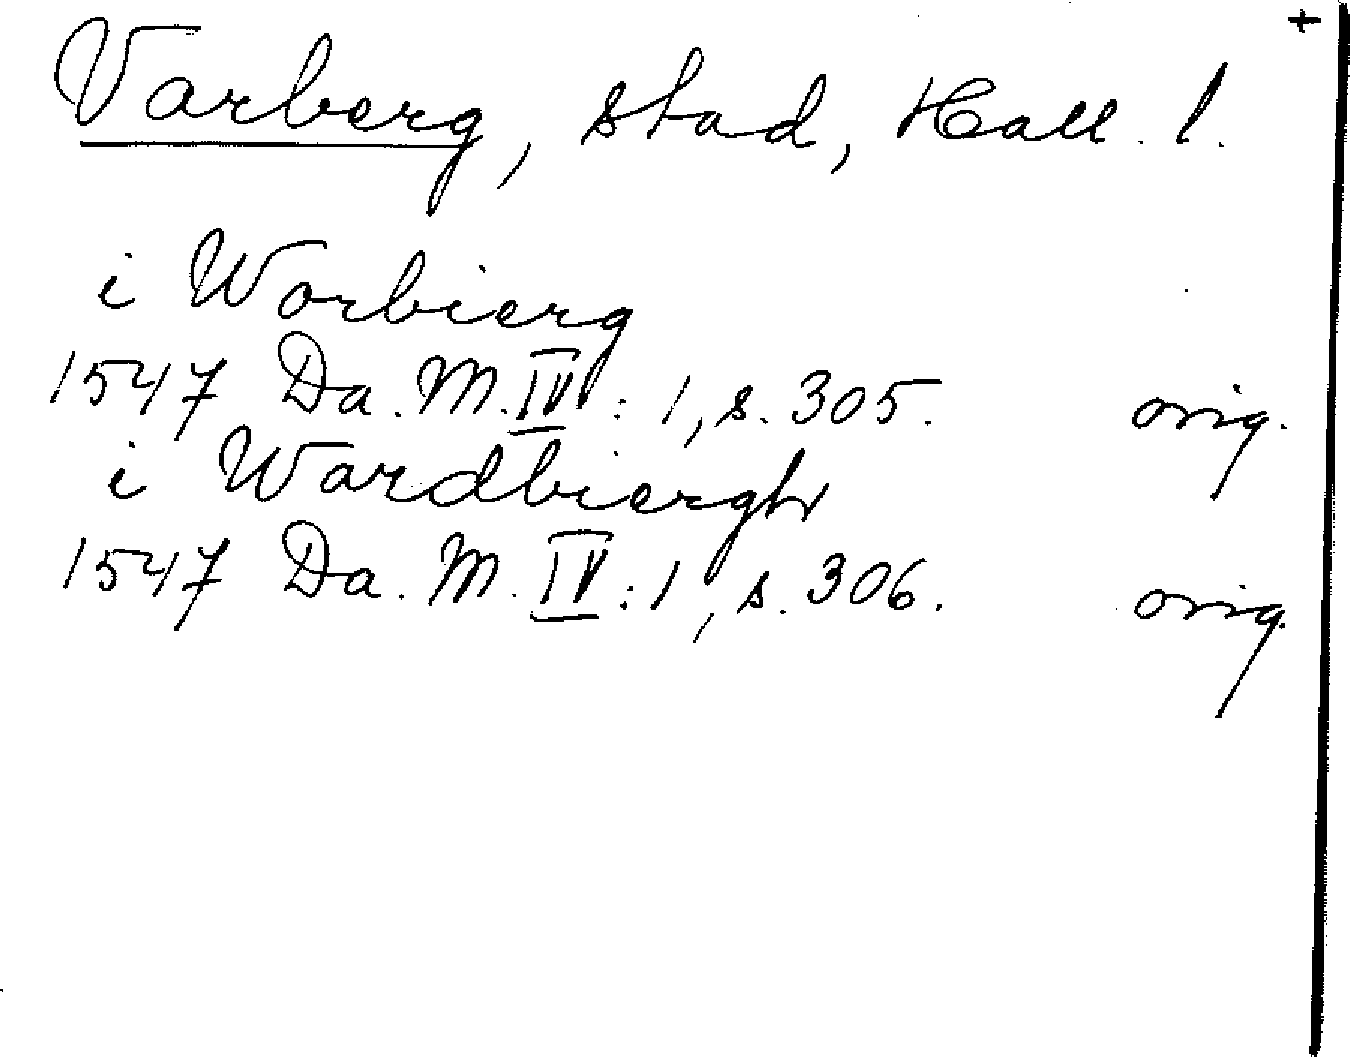 +
Varberg, stad, Hall. l.
i Worbierg
1547 Da. M. IV: 1, s. 305. orig.
i Wardbiergh
1547 Da. M. IV: 1, s. 306. orig.